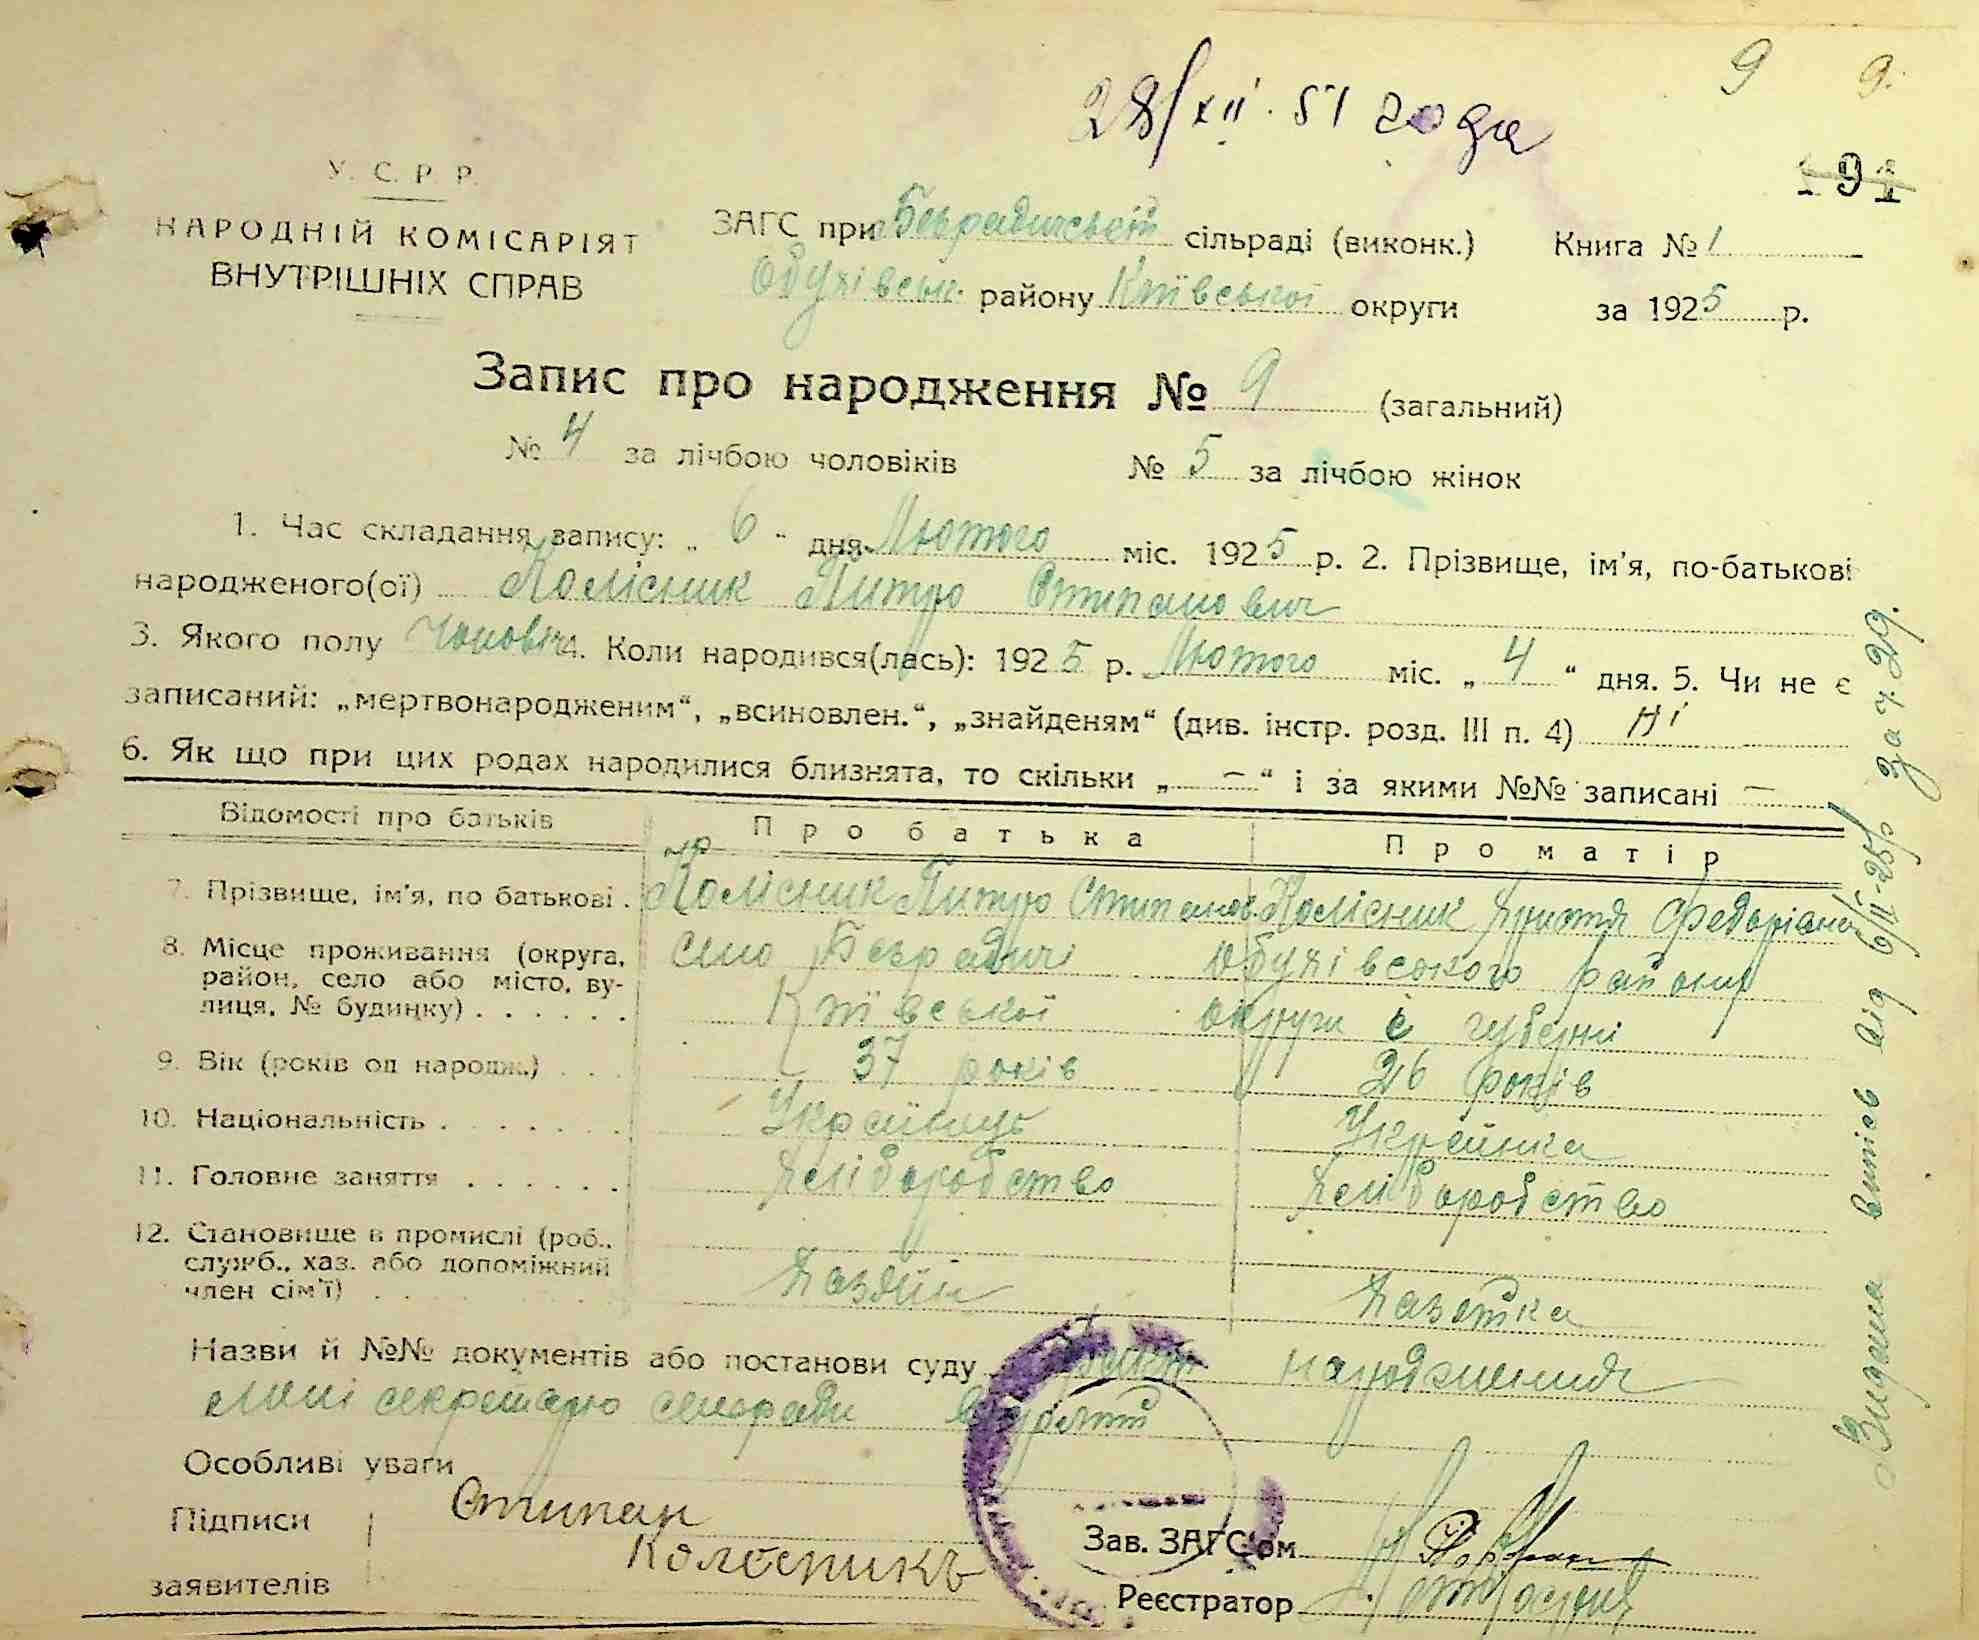 9 9.
28/XII. 51 года
У. С. Р. Р.
НАРОДНІЙ КОМІСАРІЯТ
ВНУТРІШНІХ СПРАВ
ЗАГС при Безрадичській сільраді (виконк.) Книга № 1
Обухівськ. району Київської округи за 1925 р.
Запис про народження № 9 (загальний)
№ 4 за лічбою чоловіків № 5 за лічбою жінок
1. Час складання запису: „ 6 “ дня Лютого міс. 1925 р. 2. Прізвище, ім'я, по-батькові
народженого(ої) Колісник Питро Стипанович
3. Якого полу Чоловіч 4. Коли народився(лась): 1925 р. Лютого міс. „ 4 “ дня. 5. Чи не є
записаний: „мертвонародженим“, „всиновлен.“, „знайденям“ (див. інстр. розд. III п. 4) Ні
6. Як що при цих родах народилися близнята, то скільки „ — “ і за якими №№ записані —
Відомості про батьків Про батька Про матір
7. Прізвище, ім'я, по батькові . Колісник Питро Стипанов. Колісник Христя Федорівна
8. Місце проживання (округа, село Безрадичі Обухівського району
район, село або місто, ву-
лиця, № будинку) . . . . . . Київської округи і губерні
9. Вік (років од народж.) . . . 37 років 26 років
10. Національність . . . . . . Українець Українка
11. Головне заняття . . . . . . Хліборобство Хліборобство
12. Становище в промислі (роб.,
служб., хаз. або допоміжний
член сім'ї) . . . Хазяїн Хазяйка
Назви й №№ документів або постанови суду народження
мені секретарю сельради
Особливі уваги
Підписи Стипан
заявителів Колесникъ
Зав. ЗАГС'ом
Реєстратор
Видана витісь від 6/II-25р за ч. 29.